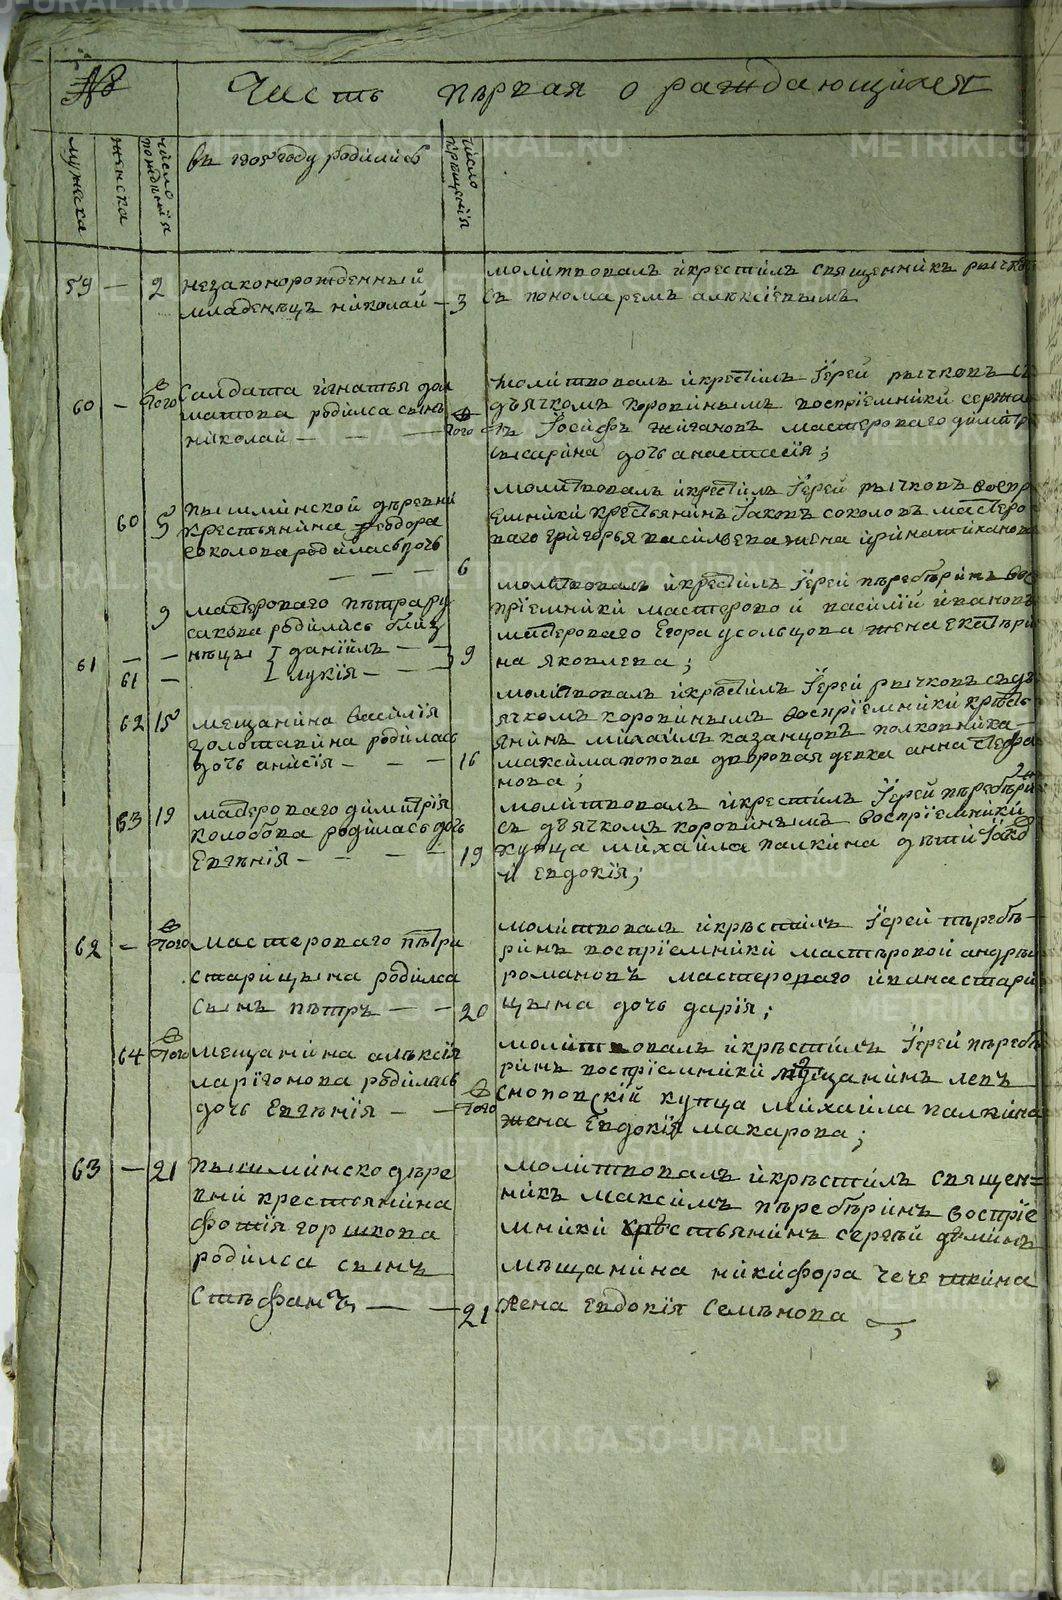 №
Часть пѣрвая о раждающихся
мужеска
женска
число рождѣнїя
въ 1805 году родились
число крѣщенїя
59 — 2 незаконорожденный
младенѣцъ николай — 3
молитвовалъ и крестилъ священникъ рычковъ
съ пономаремъ алексїевымъ
60 — того Салдата игнатья дол
матова родился сынъ
николай — — — того
молитвовалъ и крестилъ Їерей рычковъ съ
дьячкомъ коровинымъ воспрїемники сержа
нтъ Їосифъ жигановъ мастероваго димитр
сысарина дочь анастасїя;
60 5 пышминской деревни
крестьянина феодора
соколова родилась дочь
— — — 6
молитвовалъ и крестилъ Їерей рычковъ воспр
емники крестьянинъ Їаковъ соколовъ мастеро
ваго григорья васильева жена ирина тиханова
9 мастероваго пѣтра ру
сакова родились близ
61 — — нѣцы данїилъ — — 9
61 — лукїя — —
молитвовалъ и крестилъ Їерей пѣребѣринъ вос
прїемники мастеровой василїй ивановъ
мастероваго Егора усольцова жена екатѣри
на яковлева;
62 15 мещанина василїя
золотавина родилась
дочь анисїя — — — 16
молитвовалъ и крѣстилъ Їерей рычковъ съ дь
ячкомъ коровинымъ воспрїемники крѣсть
янинъ михаилъ казанцовъ полковника
максима попова дворовая девка анна стефа
нова;
63 19 мастероваго димитрїя
колобова родилась дочь
Евгѣнїя — — — — 19
молитвовалъ и крестилъ Їерей пѣребѣри
съ дьячкомъ коровинымъ воспрїемники
купца михайла палкина дѣти Їаков
и евдокїя;
62 — того мастероваго пѣтра
старицына родился
сынъ пѣтръ — — 20
молитвовалъ и крѣстилъ Їерей пѣребѣ
ринъ воспрїемники мастѣровой андрѣй
романовъ мастероваго ивана стари
цына дочь дарїя;
64 того мещанина алѣксїя
ларїгонова родилась
дочь Евгѣнїя — — того
молитвовалъ и крѣстилъ Їерей пѣребѣ
ринъ воспрїемники мѣщанинъ левъ
сноповскїй купца михайла палкина
жена Евдокїя макарова;
63 — 21 пышминско дѣре
вни крестьянина
фотїя горшкова
родился сынъ
Стѣфанъ — — 21
молитвовалъ и крѣстилъ священ=
никъ максимъ пѣребѣринъ воспрїе
мники крѣстьянинъ сергѣй дѣминъ
мѣщанина никифора чечеткина
жена Евдокїя Семѣнова;
METRIKI.GASO-URAL.RU